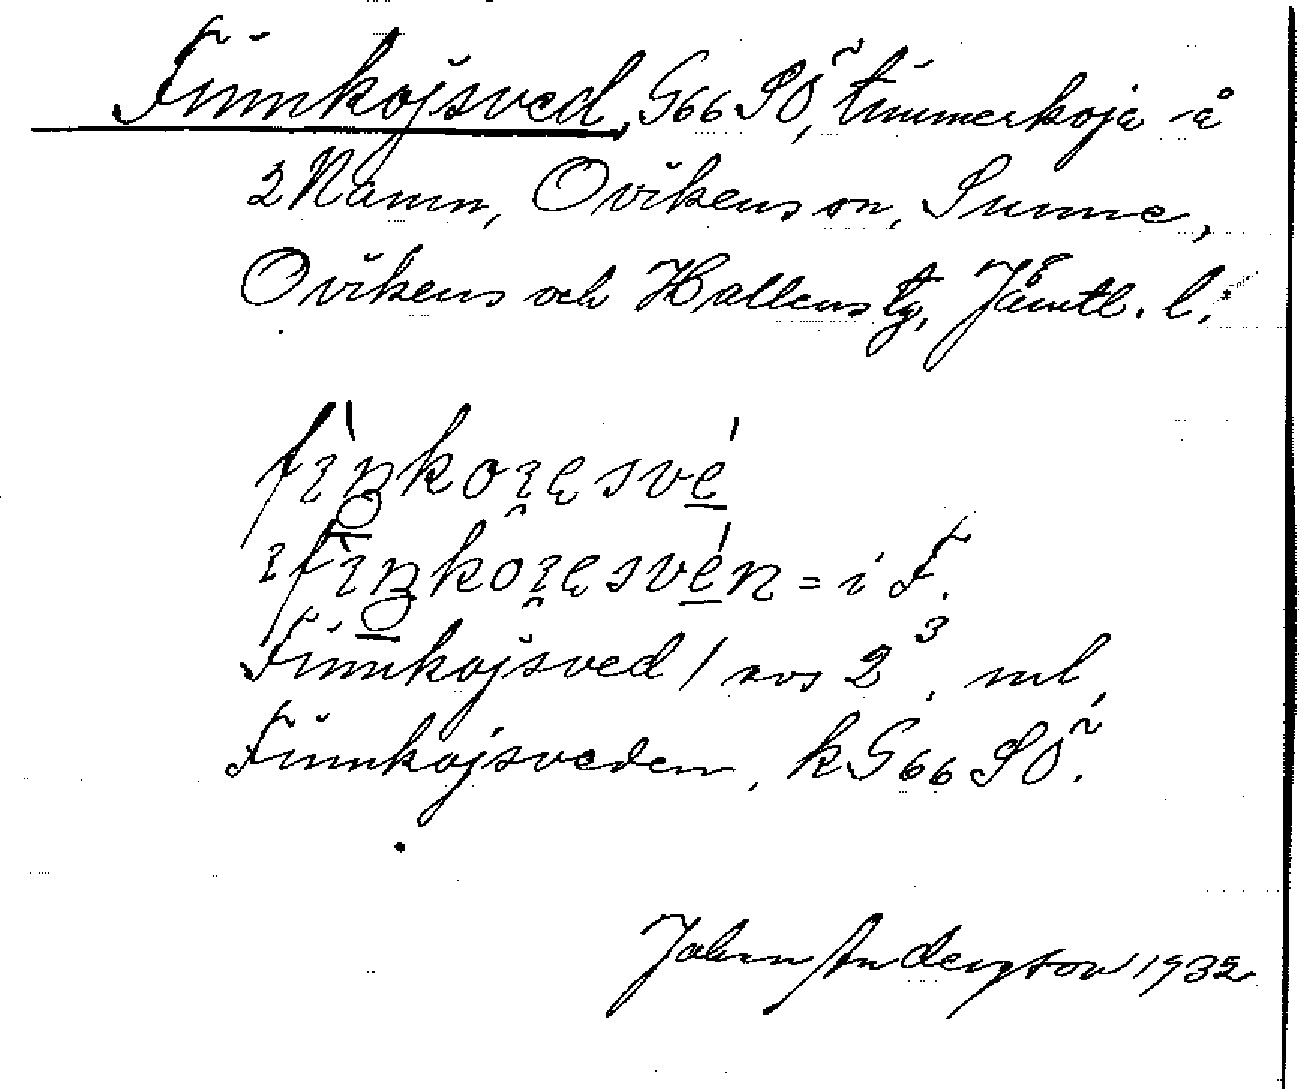 Finnkojsved, G66 SÖ, timmerkoja å
2 Namn, Ovikens sn, Sunne,
Ovikens och Hallens tg, Jämtl. l.
= i F.
Finnkojsved / avs 2³, ml,
Finnkojsveden, k G66 SÖ.
Johan Anderzson 1932